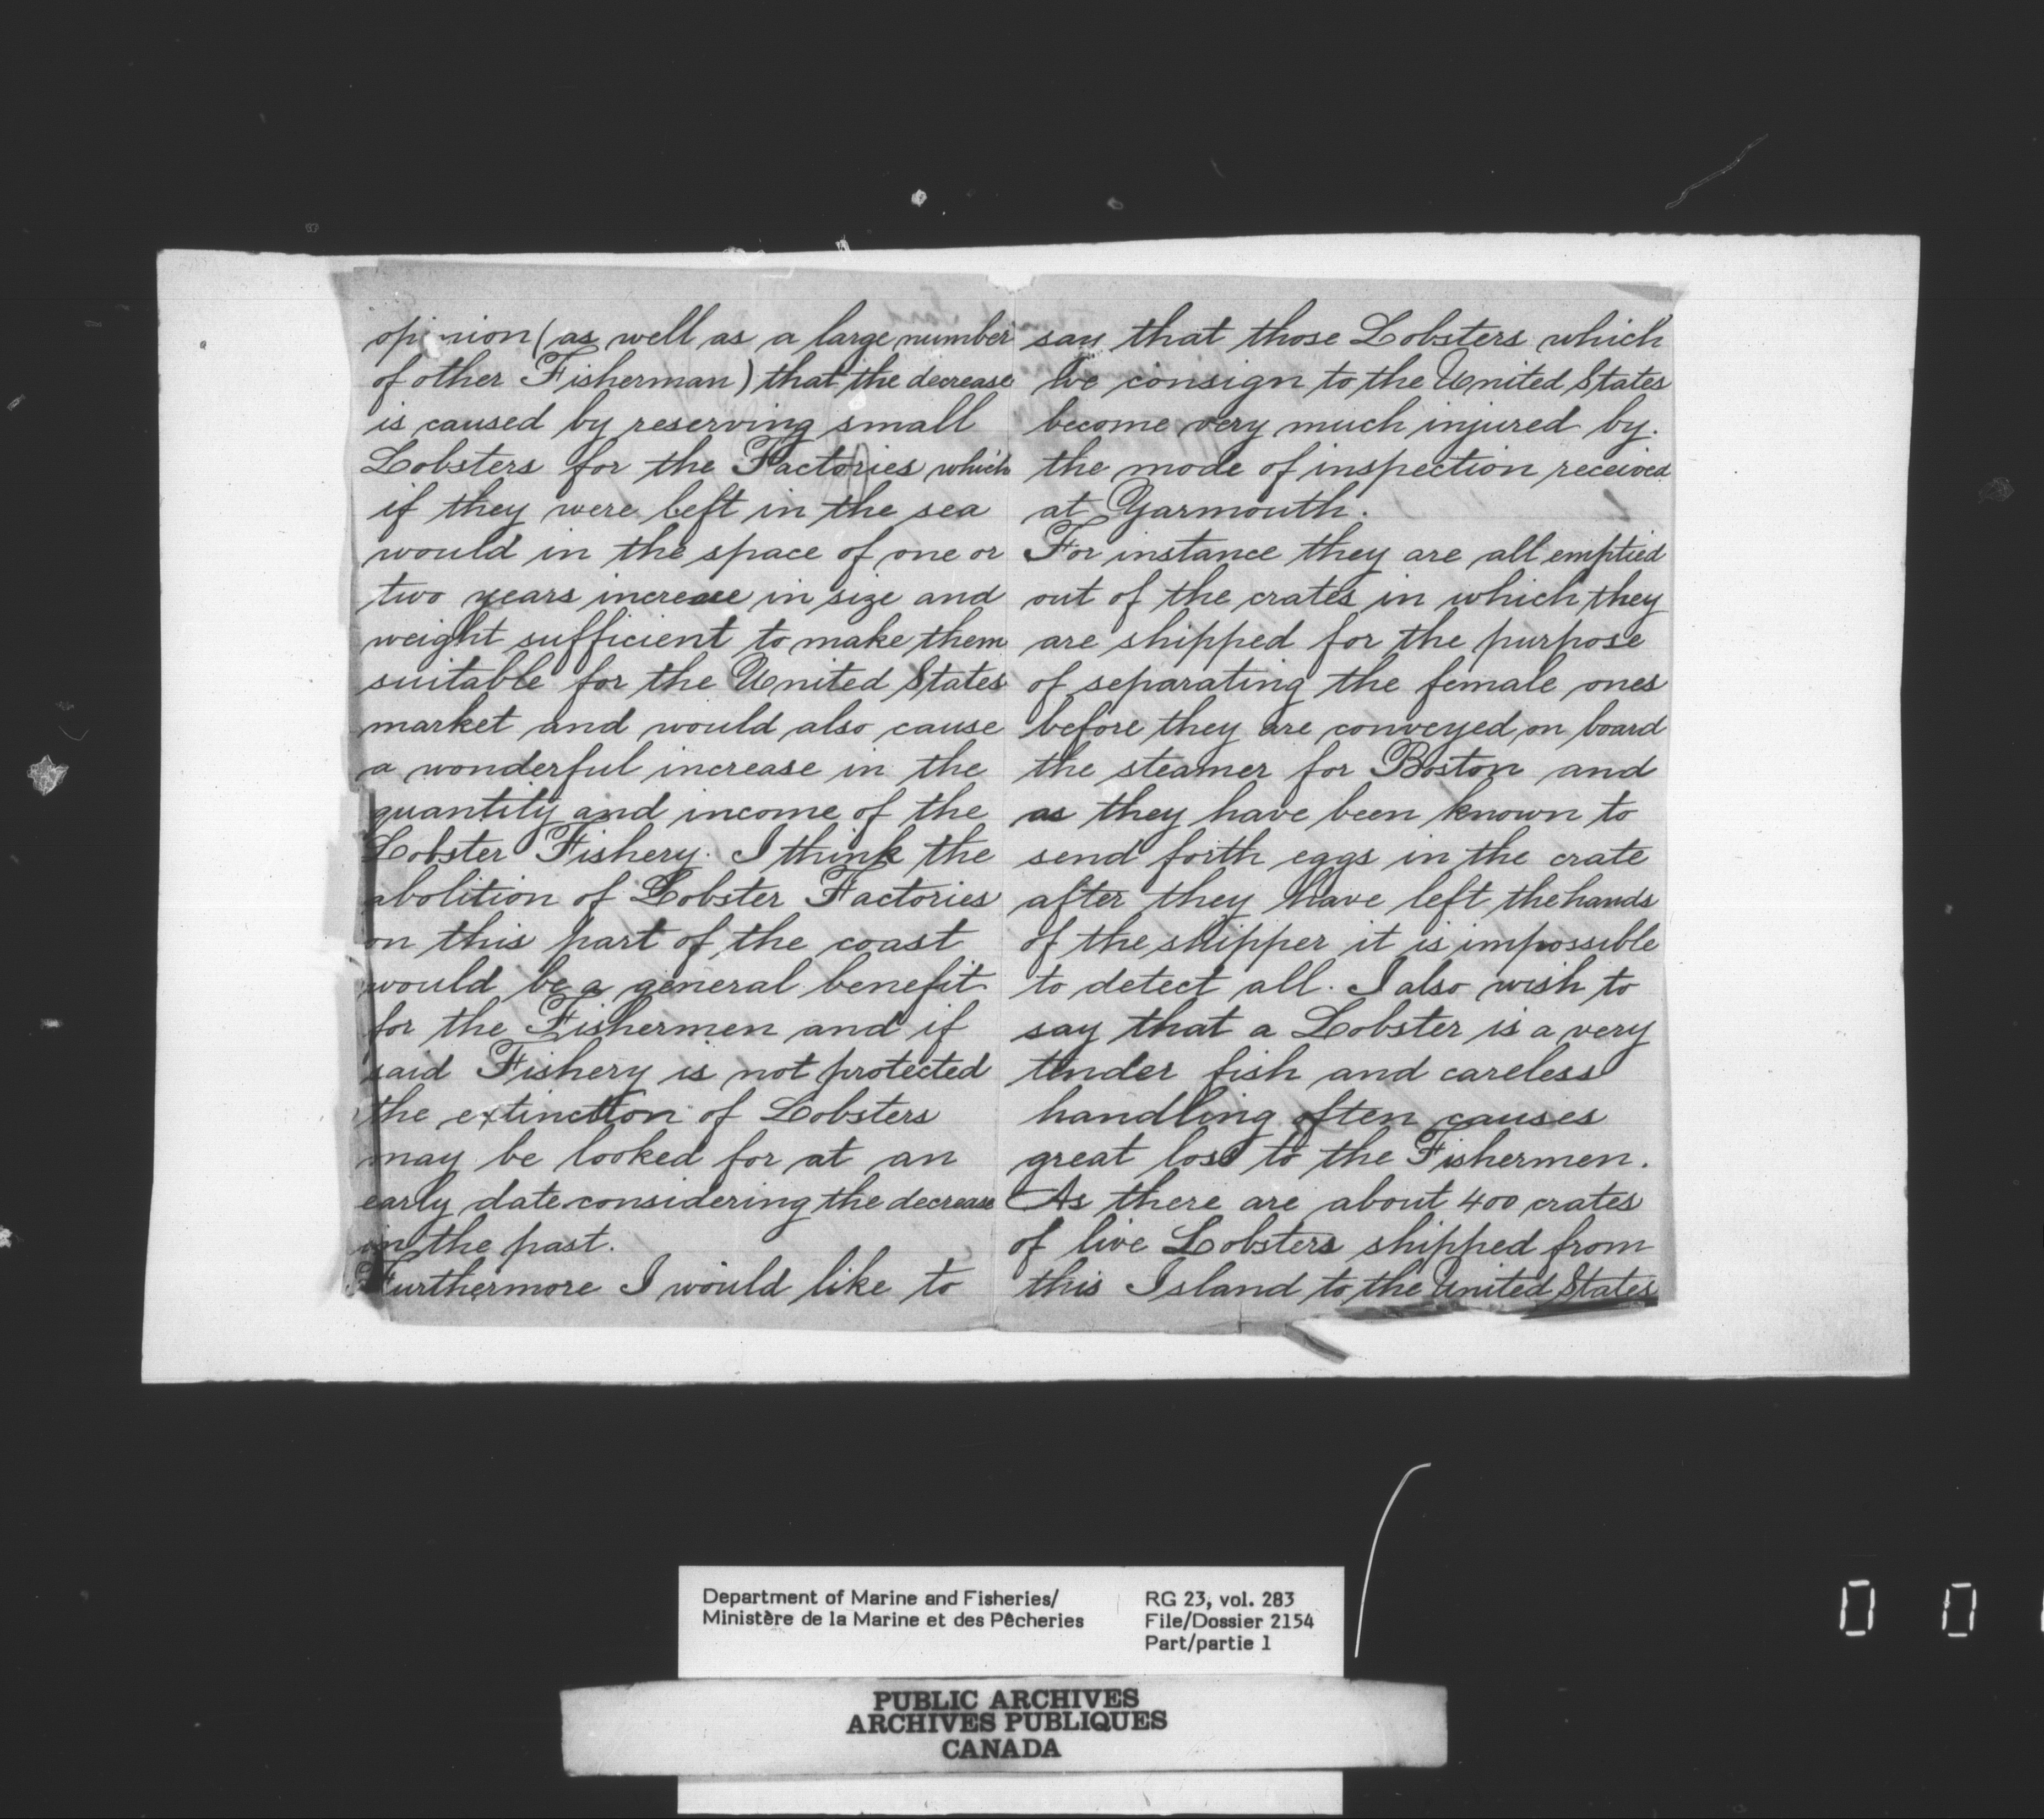 opinion (as well as a large number
of other Fisherman) that the decrease
is caused by reserving small
Lobsters for the Factories which
if they were left in the sea
would in the space of one or
two years increase in size and
weight sufficient to make them
suitable for the United States
market and would also cause
a wonderful increase in the
quantity and income of the
Lobster Fishery. I think the
abolition of Lobster Factories
on this part of the coast
would be a general benefit
for the Fishermen and if
said Fishery is not protected
the extinction of Lobsters
may be looked for at an
early date considering the decrease
in the past.
Furthermore I would like to
say that those Lobsters which
we consign to the United States
become very much injured by
the mode of inspection received
at Yarmouth.
For instance they are all emptied
out of the crates in which they
are shipped for the purpose
of separating the female ones
before they are conveyed on board
the steamer for Boston and
as they have been known to
send forth eggs in the crate
after they have left the hands
of the shipper it is impossible
to detect all. I also wish to
say that a Lobster is a very
tender fish and careless
handling often causes
great loss to the Fishermen.
As there are about 400 crates
of live Lobsters shipped from
this Island to the United States
Department of Marine and Fisheries/
Ministère de la Marine et des Pêcheries
RG 23, vol. 283
File/Dossier 2154
Part/partie 1
PUBLIC ARCHIVES
ARCHIVES PUBLIQUES
CANADA
0 0